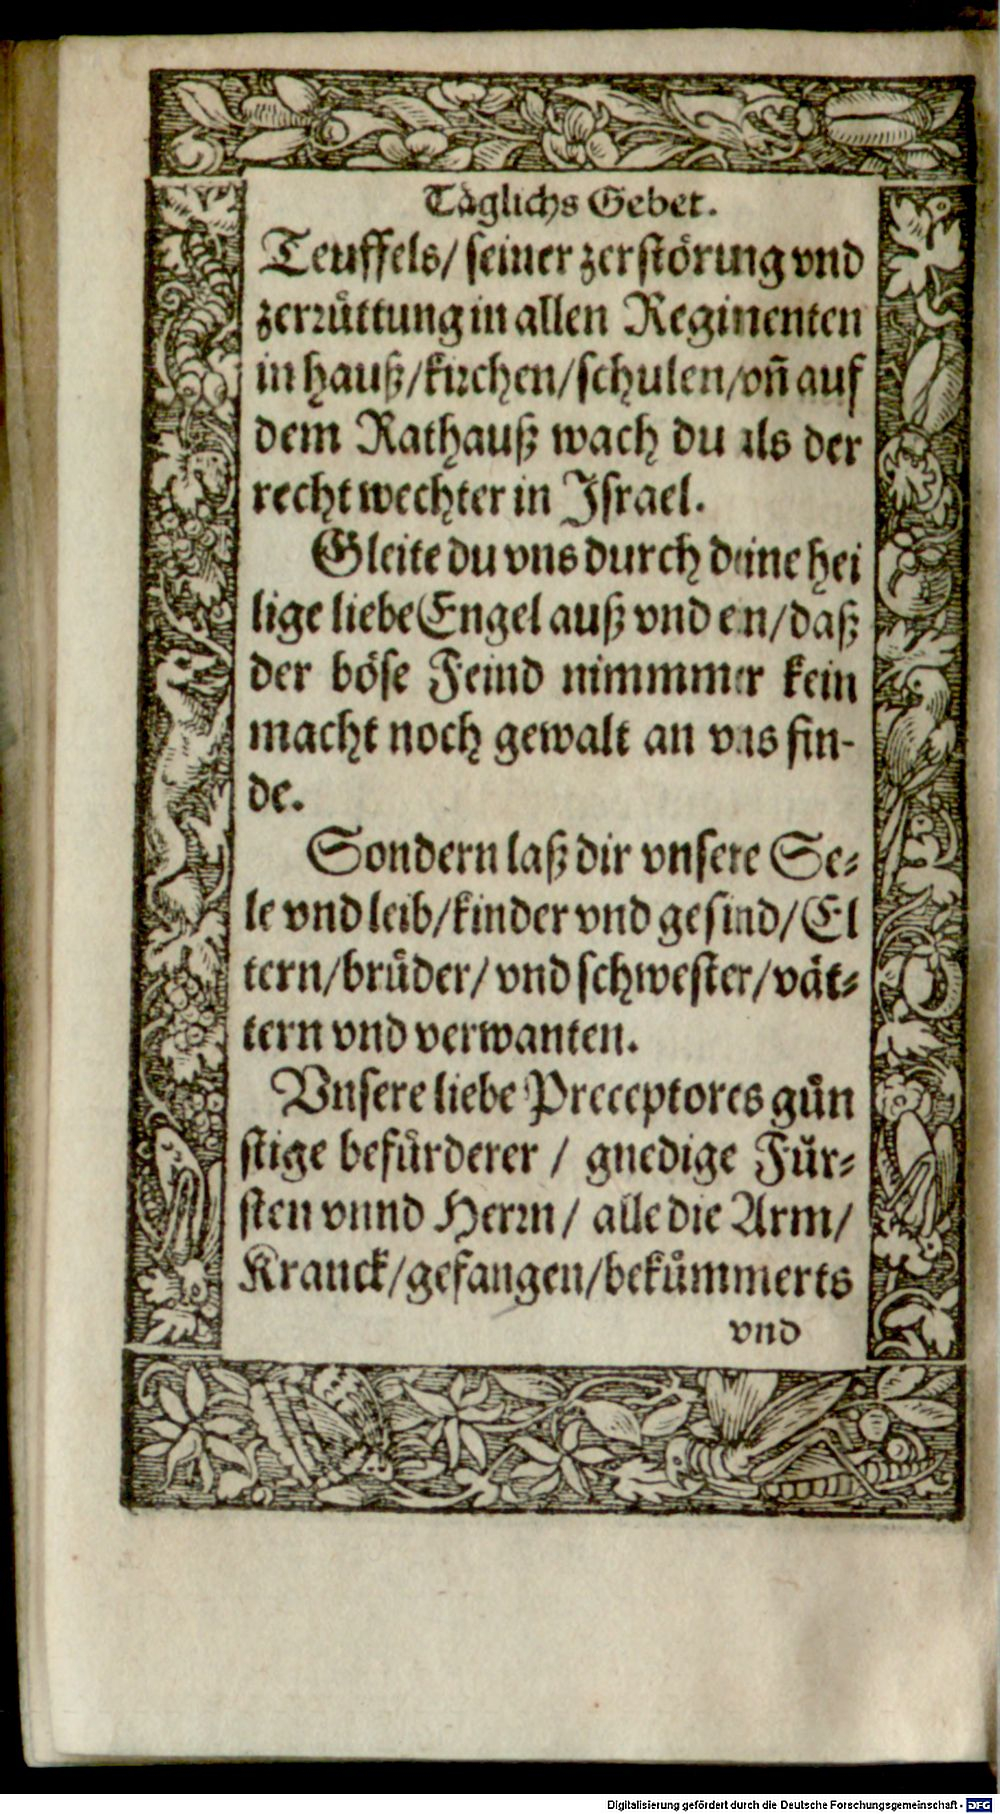 Täglichs Gebet.
Teuffels/ seiner zerstörung vnd
zerrüttung in allen Regimenten
in hauß/kirchen/schulen/vñ auf
dem Rathauß wach du als der
recht wechter in Israel.
Gleite du vns durch deine hei
lige liebe Engel auß vnd ein/daß
der böse Feind nimmmer kein
macht noch gewalt an vns fin-
de.
Sondern laß dir vnsere Se-
le vnd leib/kinder vnd gesind/El
tern/brüder/ vnd schwester/vät-
tern vnd verwanten.
Vnsere liebe Preceptores gün
stige befürderer / gnedige Für-
sten vnnd Herrn/ alle die Arm/
Kranck/gefangen/bekümmerts
vnd
Digitalisierung gefördert durch die Deutsche Forschungsgemeinschaft - DFG